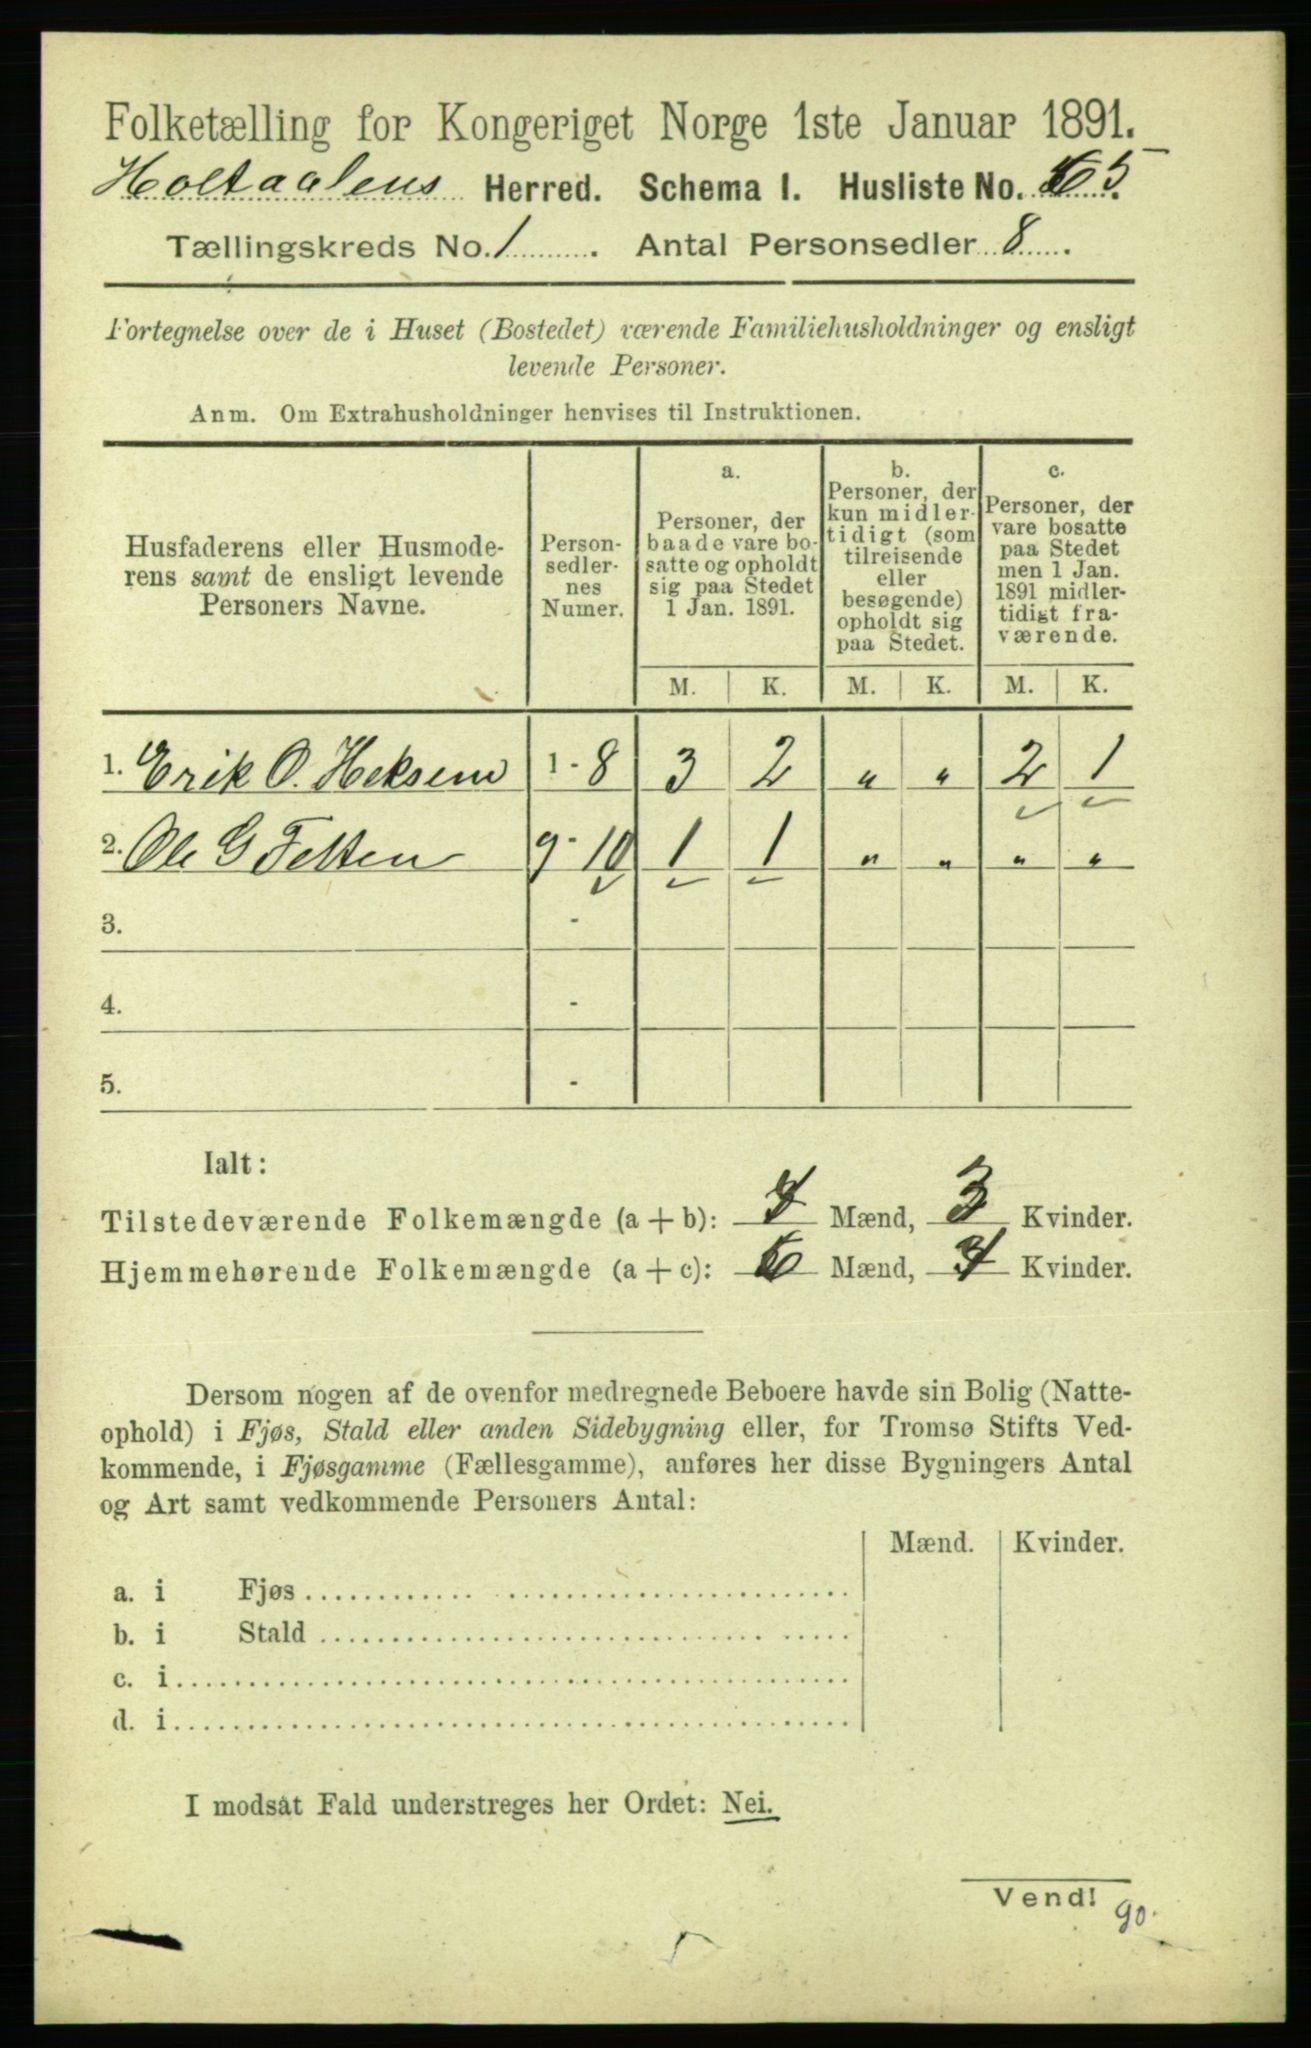 Folketælling for Kongeriget Norge 1ste Januar 1891.
Holtaalens Herred. Schema 1. Husliste No. 65
Tællingskreds No. 1. Antal Personsedler 8.
Fortegnelse over de i Huset (Bostedet) værende Familiehusholdninger og ensligt
levende Personer.
Anm. Om Extrahusholdninger henvises til Instruktionen.
Husfaderens eller Husmode-
rens samt de ensligt levende
Personers Navne.
Person-
sedler-
nes
Numer.
a.
Personer, der
baade vare bo-
satte og opholdt
sig paa Stedet
1 Jan. 1891.
b.
Personer, der
kun midler-
tidigt (som
tilreisende
eller
besøgende)
opholdt sig
paa Stedet.
c.
Personer, der
vare bosatte
paa Stedet
men 1 Jan.
1891 midler-
tidigt fra-
værende.
M. K. M. K. M. K.
1. Erik O. Heksem 1 - 8 3 2 " " 2 1
2. Ole G Feltten 9 - 10 1 1 " " " "
3. -
4. -
5. -
Ialt:
Tilstedeværende Folkemængde (a + b): 4 Mænd, 3 Kvinder.
Hjemmehørende Folkemængde (a + c): 6 Mænd, 4 Kvinder.
Dersom nogen af de ovenfor medregnede Beboere havde sin Bolig (Natte-
ophold) i Fjøs, Stald eller anden Sidebygning eller, for Tromsø Stifts Ved-
kommende, i Fjøsgamme (Fællesgamme), anføres her disse Bygningers Antal
og Art samt vedkommende Personers Antal:
Mænd. Kvinder.
a. i Fjøs
b. i Stald
c. i
d. i
I modsat Fald understreges her Ordet: Nei.
Vend!
90.